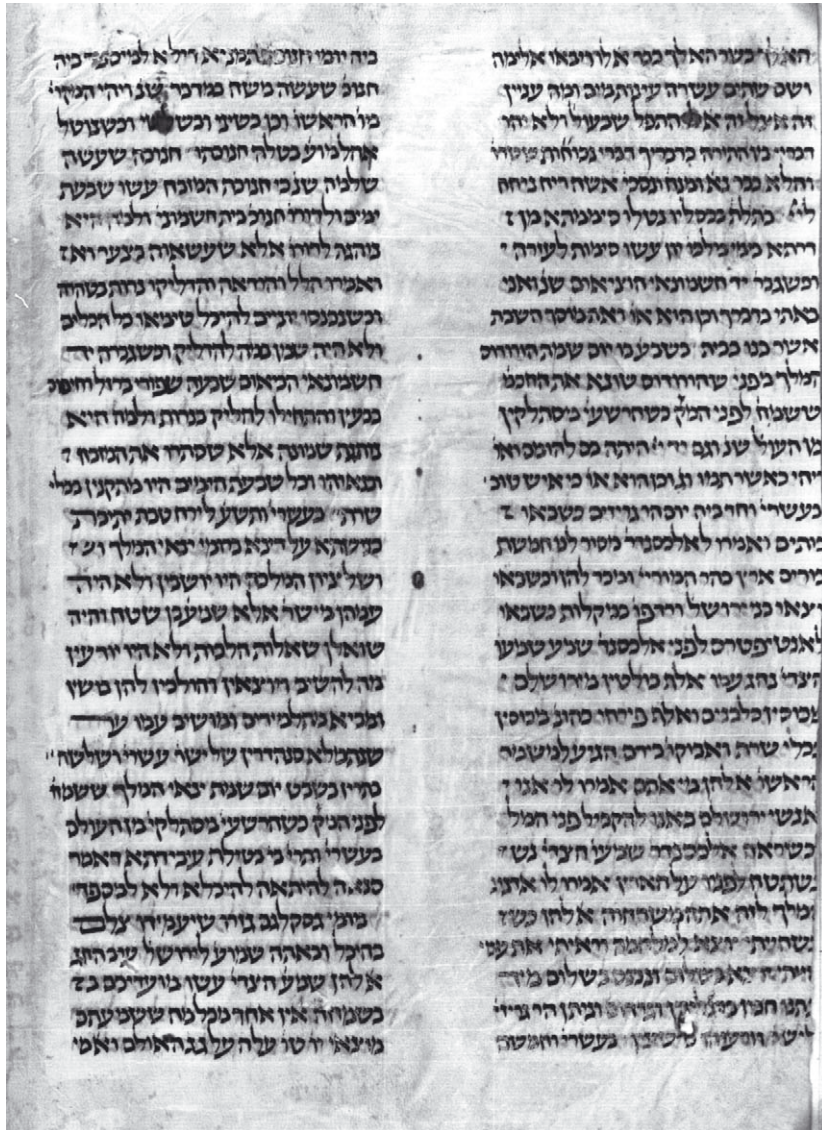 האלך כשר האלך ככר אלו ויבאו אלימה
ושם שתים עשרה עינת מים ומה עניין
זה אצל זה אלא התפל שבעול ולא יהו
דברי בן התירה כדברך דברי נכוחות שסדרו
והלא כבר נא ומנח ונסכי אשה ריח ניחח
לי״י בתלת בכסליו נטילו סימותא מן ד
דרתא מפני שבימי יון עשו סימות לעזרה
וכשגבר יד חשמונאי הוציאום שנ ואני
באתי כדברך וכן הוא או ואת מוסך השבת
אשר בנו בבית בשבעה בו יום שמת הורודוס
המלך מפני שהורודוס שונא את החכמ
ששמח לפני המק כשהרשעי מסתלקין
מן העול שנ וגם יד י״י היתה בם להומם ואו
ויהי כאשר תמו וג וכן הוא או כי איש טוב
בעשרי וחד ביה יום הר גריזים כשבאו
כותים ואמרו לאלכסנדר מוסיר לנו חמשת
כורים ארץ בהר המורי ומכר להן וכשבאו
יצאו בני ירושל ורדפו במקלות כשבאו
לאנטיפטרס לפני אלכסנדר שמע שמעון
הצדי נהג עמו אלף בולטין מירושלם
מכוסין בלבנים ואלף פירחי כהונ מכוסין
בכלי שרת ואבוקו בידם הגיע למשמר
הראשו אלהן מי אתם אמרו לו אנו
אנשי ירושלם באנו להקביל פני המל
כשראה אלכסנדר שמעון הצדי
נשתטח לפניו על הארץ אמרו לו אדונ
המלך לזה אתה משתחוה אלהן כש
בשעה שאני יוצא למלחמה ראיתי את
והייתי יוצא בשלום ונכנס בשלום מיד
נתנו חמין ברגליהן וניתן הר גריזי
לישר ועשוהו בעשרי וחמשה
ביה יומי חנוכה תמניא די לא למיספד ביה
חנוכ שעשה משה במדבר שנ ויהי המקרי
מו הראשו וכן בשיני ובשלשי וכשנוטל
אהל מועד בטלה חנוכתו חנוכה שעשה
שלמה שנ כי חנוכת המזבח עשו שבעת
ימים ולדורו חנוכ בית חשמונאי ולמה היא
נוהגה לדורו אלא שעשאוה בצער ואז
ואמרו הלל והודאה והדליקו נרות בטהרה
וכשנכנסו יוונים להיכל טימאו כל הכלים
ולא היה שמן במה להדליק וכשגברה יד
חשמונאי הביאום שבעה שפודי ברזל וחיפום
בבעץ והתחילו להדליק בנרות ולמה היא
נוהגת שמונה אלא שסתרו את המזבח ד
ובנאוהו וכל שבעת הימים היו מתקנין בכלי
שרת בעשרי ותשע לירח טבת יתיבת
כנישתא על דינא בימי ינאי המלך וש
ושל ציון המלכה היו יושבין ולא היה
עמהן מישר אלא שמע בן שטח והיה
שואלן שאלות הלכות ולא היו יודעין
מה להשיב ויוצאין והולכין להן משין
ומביא מתלמידים ומושיב עמו עד
שנתמלא סנהדרין של ישר עשרי ושלשה
בתרין בשבט יום שמת ינאי המלך ששמח
לפני המק כשהרשעי מסתלקי מן העולם
בעשרי ותרי בי בטילת עבידתא דאמר
סנאה להיתאה להיכלא דלא למספד
בימי גסקלגב גזרו שיעמידו צלם
בהיכל ובאתה שמוע לירושל ערב החג
אלהן שמע הצדי עשו מועדיכם
בשמחה אין אחד מכל מה ששמעתם
מוצאי יו טו עלה על גג האולם ואמ